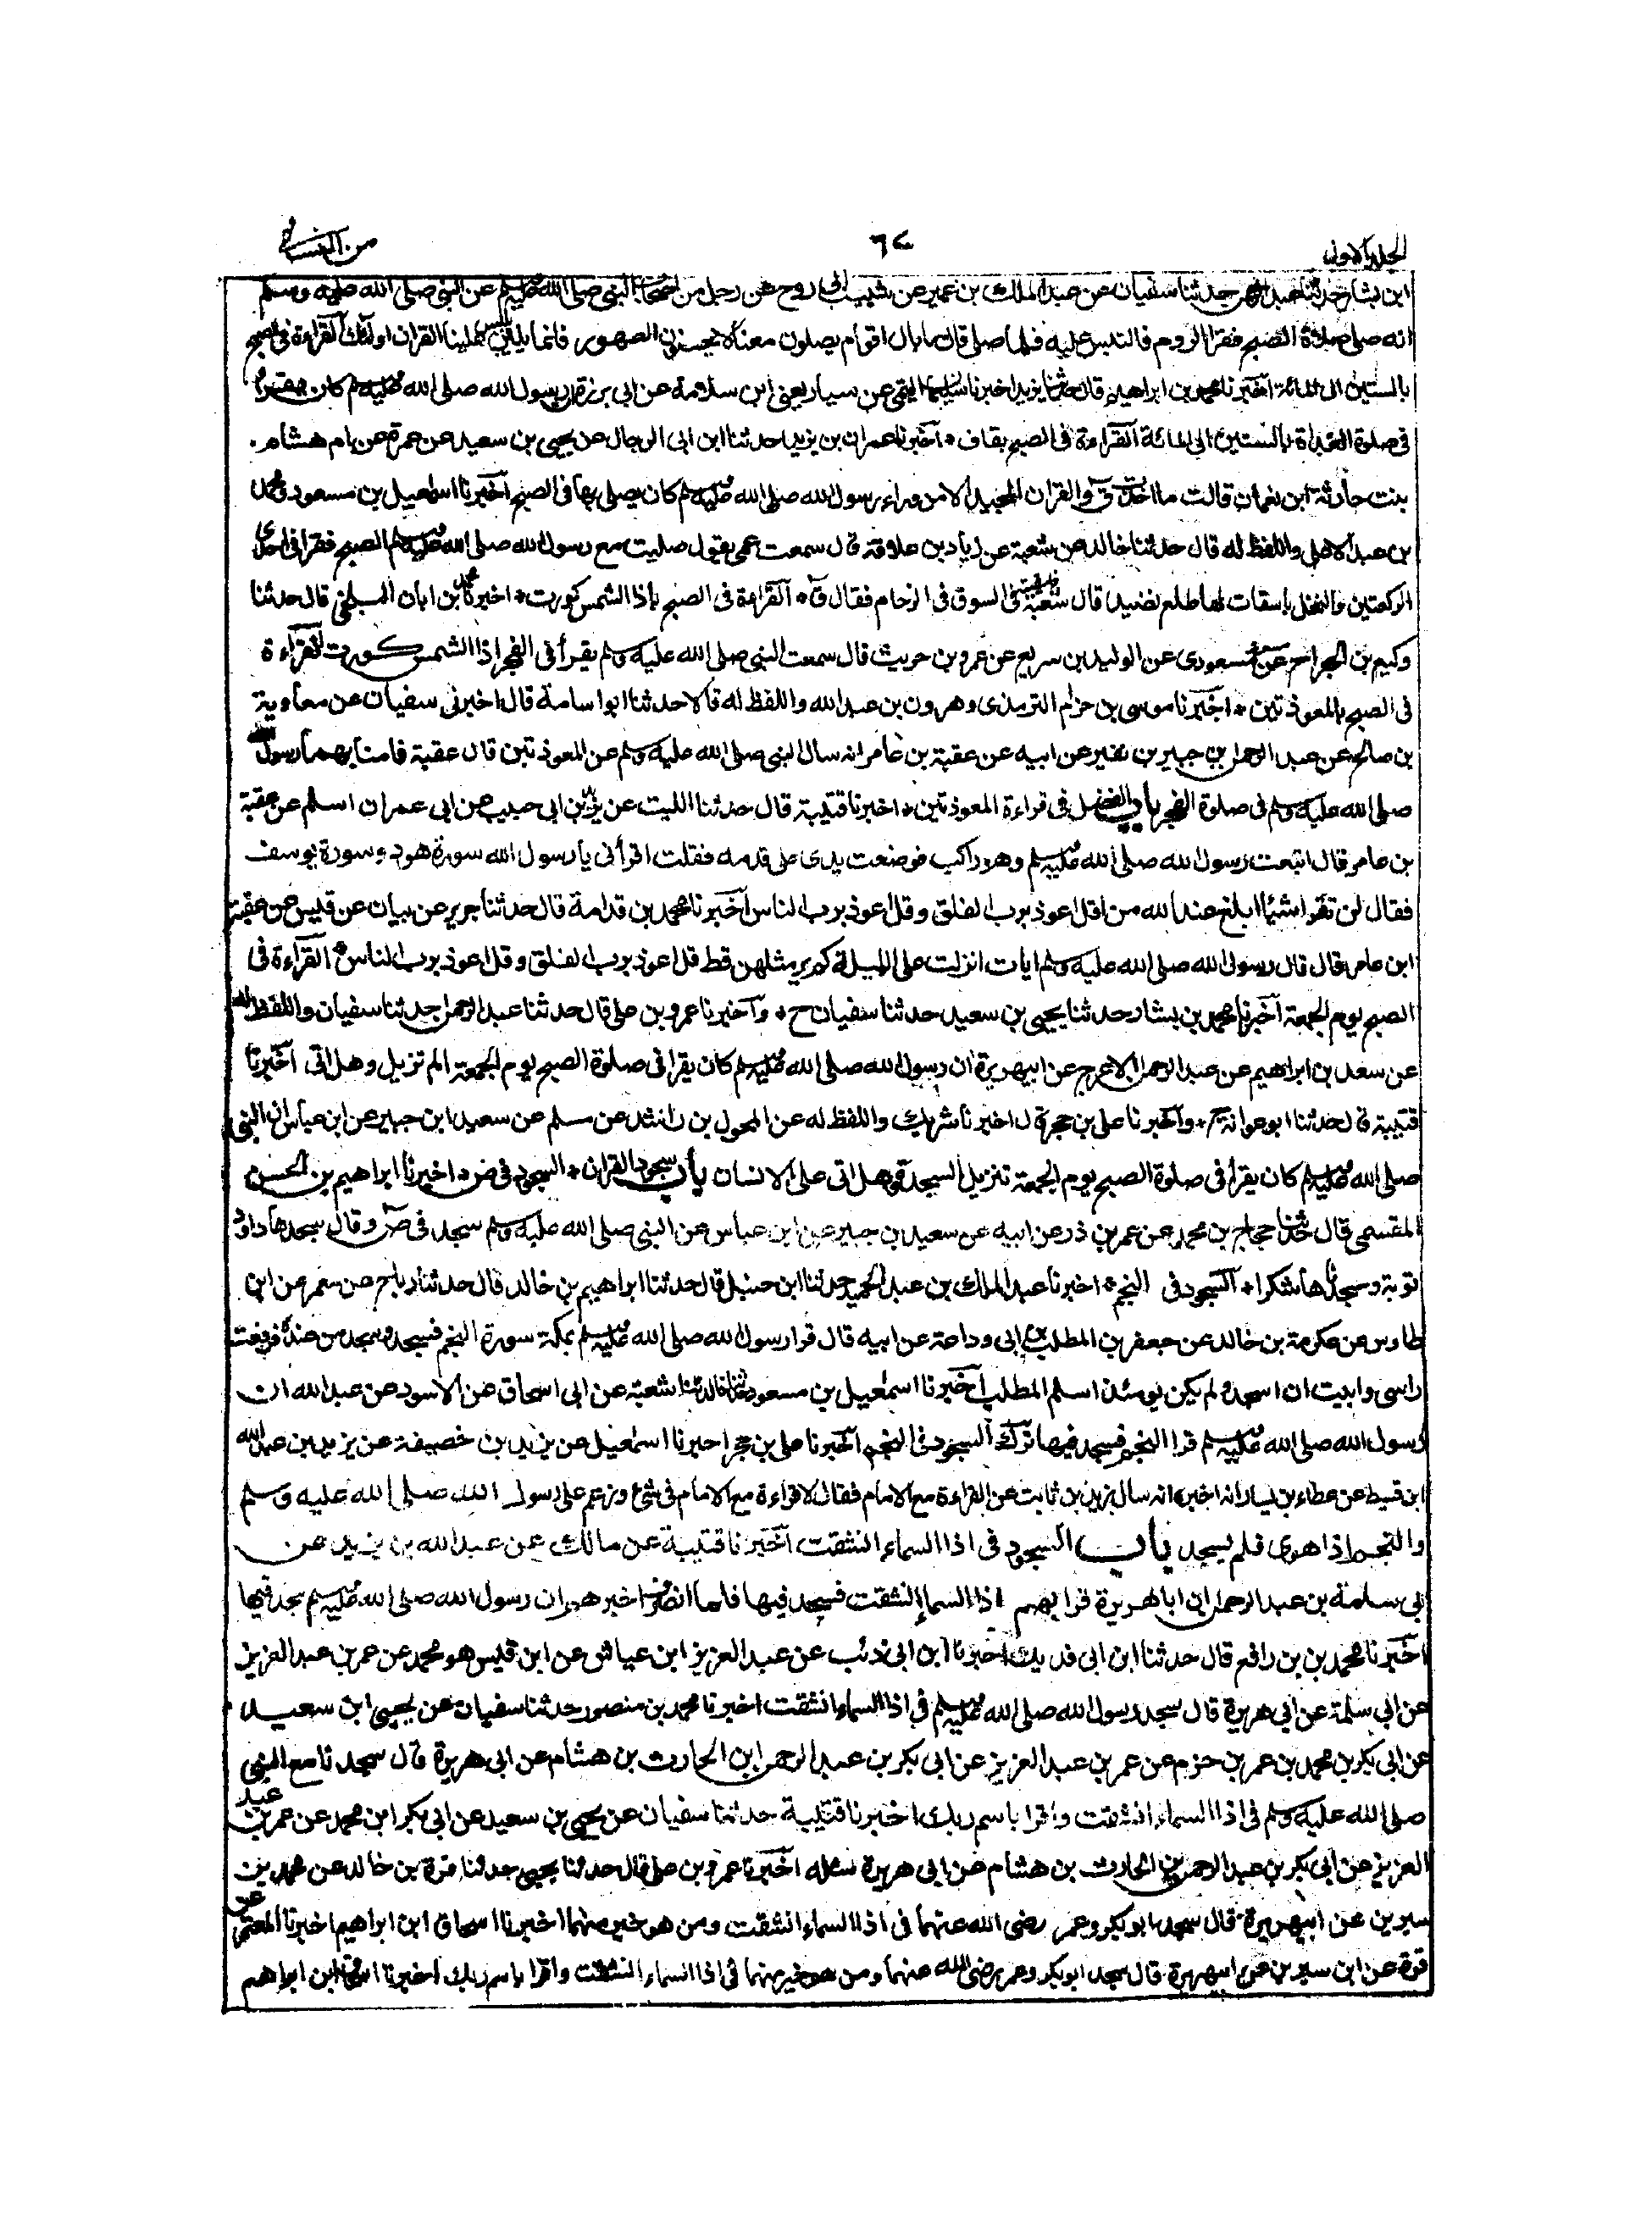 الجلد الاول ٦٧ من النسائي
ابن بشار حدثنا عبد الرحمن حدثنا سفيان عن عبد الملك بن عمير عن شبيب ابى روح عن رجل من اصحاب النبى صلى الله عليه وسلم عن النبى صلى الله عليه وسلم
انه صلى صلاة الصبح فقرا الروم فالتبس عليه فلما صلى قال ما بال اقوام يصلون معنا لا يحسنون الطهور فانما يلبس علينا القران اولئك القراءة فى الصبح
بالستين الى المائة اخبرنا محمد بن ابراهيم قال حدثنا يزيد اخبرنا سليمان التيمى عن سيار يعنى ابن سلامة عن ابى برزة ان رسول الله صلى الله عليه وسلم كان يقرأ
فى صلوة الغداة بالستين الى المائة القراءة فى الصبح بقاف اخبرنا عمران بن يزيد حدثنا ابن ابى الرجال عن يحيى بن سعيد عن عمرة عن ام هشام
بنت حارثة ابن نعمان قالت ما اخذت ق والقران المجيد الا من وراء رسول الله صلى الله عليه وسلم كان يصلى بها فى الصبح اخبرنا اسمعيل بن مسعود ومحمد
بن عبد الاعلى واللفظ له قال حدثنا خالد عن شعبة عن زياد بن علاقة قال سمعت عمى يقول صليت مع رسول الله صلى الله عليه وسلم الصبح فقرا فى احدى
الركعتين والنخل باسقات لها طلع نضيد قال شعبة فلقيته فى السوق فى الزحام فقال ق القراءة فى الصبح باذا الشمس كورت اخبرنا محمد بن ابان البلخى قال حدثنا
وكيع بن الجراح عن مسعر ومسعودى عن الوليد بن سريع عن عمرو بن حريث قال سمعت النبى صلى الله عليه وسلم يقرأ فى الفجر اذا الشمس كورت القراءة
فى الصبح بالمعوذتين اخبرنا موسى بن حزام الترمذى وهرون بن عبد الله واللفظ له قالا حدثنا ابو اسامة قال اخبرنى سفيان عن معاوية
بن صالح عن عبد الرحمن بن جبير بن نفير عن ابيه عن عقبة بن عامر انه سال النبى صلى الله عليه وسلم عن المعوذتين قال عقبة فامنا بهما رسول الله
صلى الله عليه وسلم فى صلوة الفجر باب الفضل فى قراءة المعوذتين اخبرنا قتيبة قال حدثنا الليث عن يزيد بن ابى حبيب عن ابى عمران اسلم عن عقبة
بن عامر قال اتبعت رسول الله صلى الله عليه وسلم وهو راكب فوضعت يدى على قدمه فقلت اقرأنى يا رسول الله سورة هود وسورة يوسف
فقال لن تقرا شيئا ابلغ عند الله من قل اعوذ برب الفلق وقل اعوذ برب الناس اخبرنا محمد بن قدامة قال حدثنا جرير عن بيان عن قيس عن عقبة
ابن عامر قال قال رسول الله صلى الله عليه وسلم ايات انزلت على الليلة لم ير مثلهن قط قل اعوذ برب الفلق وقل اعوذ برب الناس القراءة فى
الصبح يوم الجمعة اخبرنا محمد بن بشار حدثنا يحيى بن سعيد حدثنا سفيان ح واخبرنا عمرو بن على قال حدثنا عبد الرحمن حدثنا سفيان واللفظ له
عن سعد بن ابراهيم عن عبد الرحمن الاعرج عن ابيهريرة ان رسول الله صلى الله عليه وسلم كان يقرا فى صلوة الصبح يوم الجمعة الم تنزيل وهل اتى اخبرنا
قتيبة قال حدثنا ابو عوانة ح واخبرنا على بن حجر قال اخبرنا شريك واللفظ له عن المخول بن راشد عن مسلم عن سعيد ابن جبير عن ابن عباس ان النبى
صلى الله عليه وسلم كان يقرأ فى صلوة الصبح يوم الجمعة تنزيل السجدة وهل اتى على الانسان باب سجود القران السجود فى ص اخبرنا ابراهيم بن الحسن
المقسمى قال حدثنا حجاج بن محمد عن عمر بن ذر عن ابيه عن سعيد بن جبير عن ابن عباس عن النبى صلى الله عليه وسلم سجد فى ص وقال سجدها داود
توبة وسجدناها شكرا السجود فى النجم اخبرنا عبد الملك بن عبد الحميد حدثنا ابن حنبل قال حدثنا ابراهيم بن خالد قال حدثنا رباح عن معمر عن ابن
طاوس عن عكرمة بن خالد عن جعفر بن المطلب بن ابى وداعة عن ابيه قال قرا رسول الله صلى الله عليه وسلم بمكة سورة النجم فسجد وسجد من عنده فرفعت
راسى وابيت ان اسجد ولم يكن يومئذ اسلم المطلب اخبرنا اسمعيل بن مسعود حدثنا خالد حدثنا شعبة عن ابى اسحاق عن الاسود عن عبد الله ان
رسول الله صلى الله عليه وسلم قرا النجم فسجد فيها ترك السجود فى النجم اخبرنا على بن حجر اخبرنا اسمعيل عن يزيد بن خصيفة عن يزيد بن عبد الله
ابن قسيط عن عطاء بن يسار انه اخبره انه سال زيد بن ثابت عن القراءة مع الامام فقال لا قراءة مع الامام فى شئ وزعم على رسول الله صلى الله عليه وسلم
والنجم اذا هوى فلم يسجد باب السجود فى اذا السماء انشقت اخبرنا قتيبة عن مالك عن عبد الله بن يزيد عن
ابى سلمة بن عبد الرحمن ان ابا هريرة قرا بهم اذا السماء انشقت فسجد فيها فلما انصرف اخبرهم ان رسول الله صلى الله عليه وسلم سجد فيها
اخبرنا محمد بن بن رافع قال حدثنا ابن ابى فديك اخبرنا ابن ابى ذئب عن عبد العزيز ابن عياش عن ابن قيس هو محمد عن عمر بن عبد العزيز
عن ابى سلمة عن ابى هريرة قال سجد رسول الله صلى الله عليه وسلم فى اذا السماء انشقت اخبرنا محمد بن منصور حدثنا سفيان عن يحيى ابن سعيد
عن ابى بكر بن محمد بن عمر بن حزم عن عمر بن عبد العزيز عن ابى بكر بن عبد الرحمن ابن الحارث بن هشام عن ابى هريرة قال سجد نا مع النبى
صلى الله عليه وسلم فى اذا السماء انشقت واقرا باسم ربك اخبرنا قتيبة حدثنا سفيان عن يحيى بن سعيد عن ابى بكر ابن محمد عن عمر بن عبد
العزيز عن ابى بكر بن عبد الرحمن بن الحارث بن هشام عن ابى هريرة مثله اخبرنا عمرو بن على قال حدثنا يحيى حدثنا قرة بن خالد عن محمد بن
سيرين عن ابيهريرة قال سجد ابو بكر وعمر رضى الله عنهما فى اذا السماء انشقت ومن هو خير منهما اخبرنا اسحاق ابن ابراهيم اخبرنا المعتمر عن
قرة عن ابن سيرين عن ابيهريرة قال سجد ابو بكر وعمر رضى الله عنهما ومن هو خير منهما فى اذا السماء انشقت واقرا باسم ربك اخبرنا اسحاق ابن ابراهيم